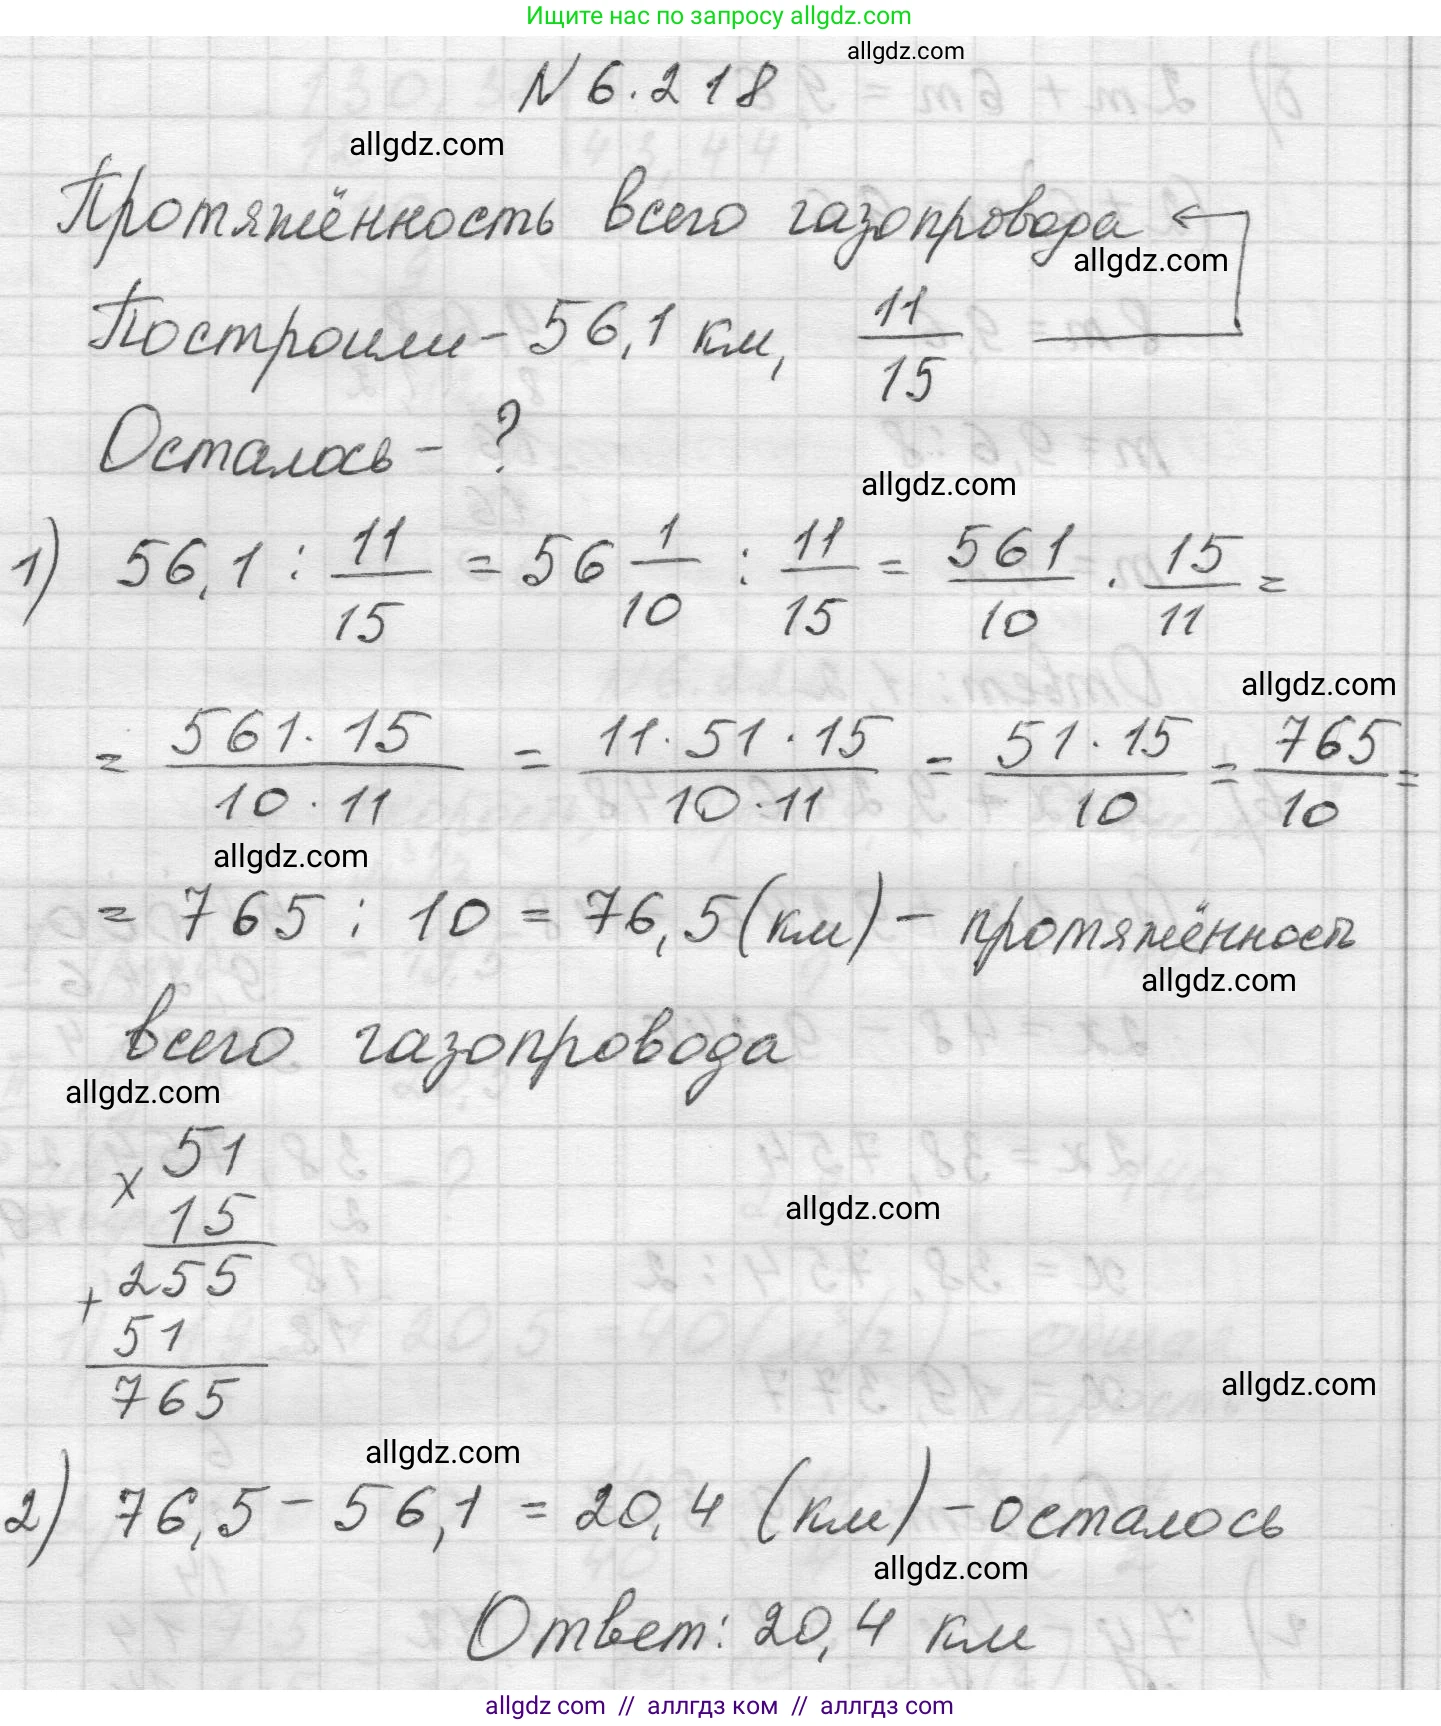 Ищите нас по запросу allgdz.com
allgdz.com
N 6.218
allgdz.com
Протяжённость всего газопровода
allgdz.com
Построили - 56,1 км, 11/15
Осталось - ?
allgdz.com
1) 56,1 : 11/15 = 56 1/10 : 11/15 = 561/10 · 15/11 =
allgdz.com
= 561 · 15/10 · 11 = 11 · 51 · 15/10 · 11 = 51 · 15/10 = 765/10 =
allgdz.com
= 765 : 10 = 76,5 (км) - протяжённость
allgdz.com
всего газопровода
allgdz.com
x 51
15
allgdz.com
+ 255
51
765
allgdz.com
allgdz.com
2) 76,5 - 56,1 = 20,4 (км) - осталось
allgdz.com
Ответ: 20,4 км
allgdz.com // аллгдз ком // аллгдз com